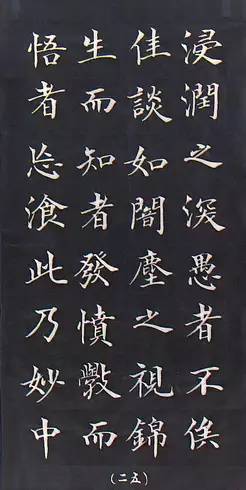 浸潤之深愚者不俟
佳談如闇塵之視錦
生而知者發憤斅而
悟者忘湌此乃妙中
(二五)